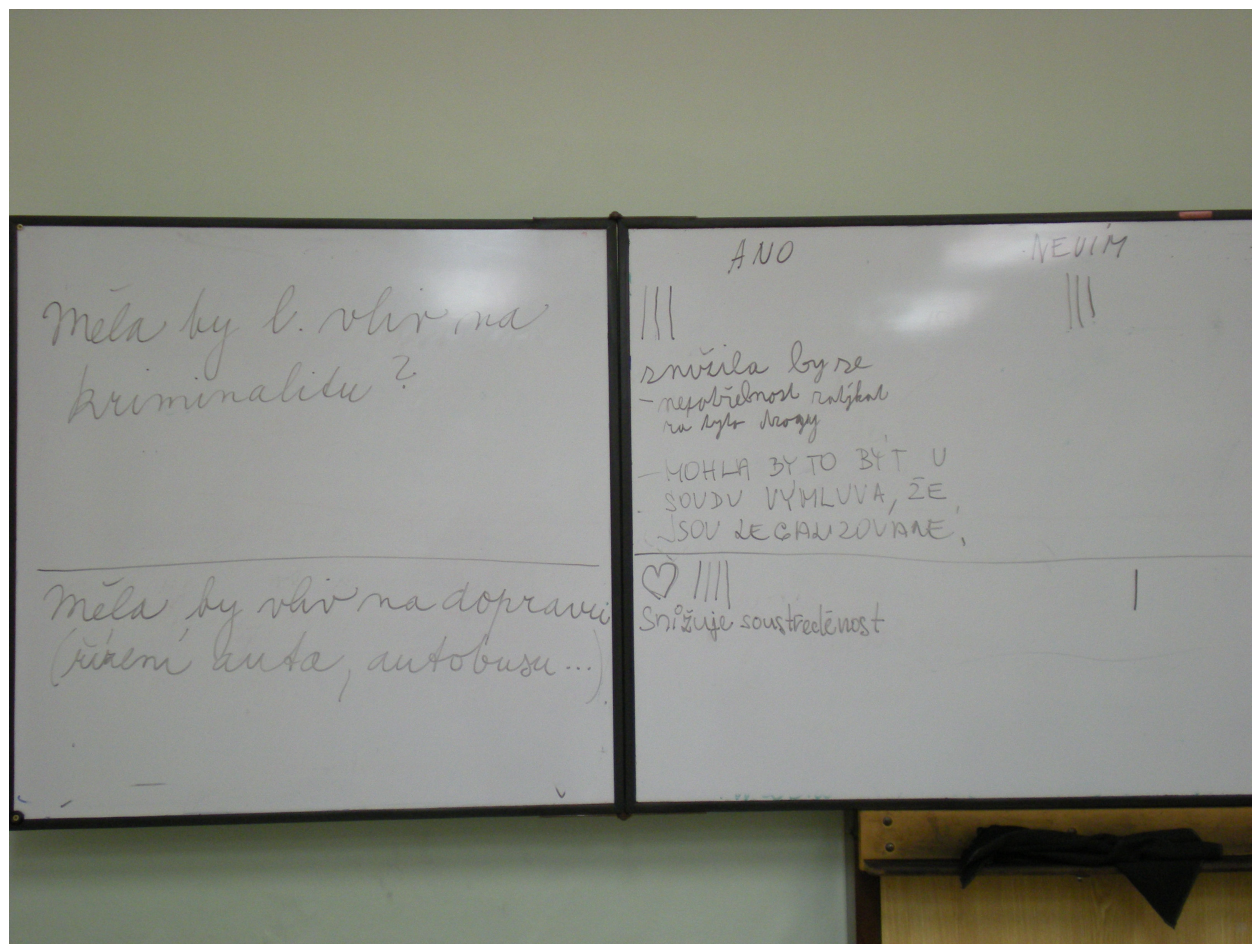 Měla by l. vliv na
kriminalitu?
Měla by vliv na dopravu
(řízení auta, autobusu...)
ANO
NEVÍM
|||
|||
snížila by se
- nepotřebnost zatýkat
za tyto drogy
- MOHLA BY TO BÝT U
SOUDU VÝMLUVA, ŽE
JSOU LEGALIZOVANÉ.
♡ ||||
|
Snižuje soustředěnost